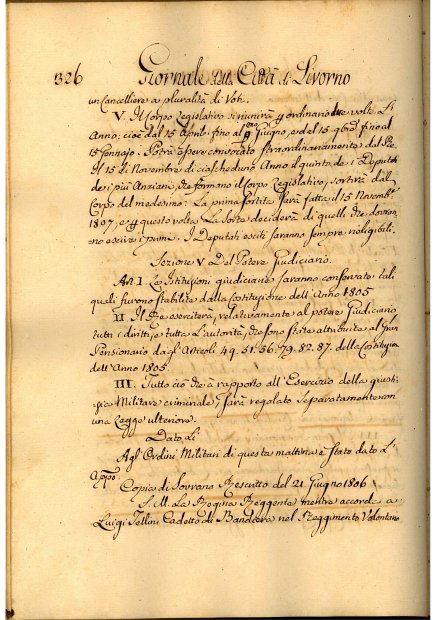 1326 Giornale della Città di Livorno
un Cancelliere a pluralità di Voti.
V. Il Corpo Legislativo si riunirà per ordinario due volte L'
Anno: cioè dal 15 Aprile fino al pmo Giugno, e dal 15. 9bre fino al
15 Gennajo: Potrà essere convocato straordinariamente dal Re.
Il 15 di Novembre di ciascheduno Anno il quinto de i Deputati
de i più Anziani, che formano il Corpo Legislativo, sortirà dal
Corpo del medesimo: La prima sortita sarà fatta il 15 Novembre
1807, e per questa volta La Sorte deciderà di quelli che dovran,
no escire i primi. I Deputati esciti saranno sempre rieligibili.
Sezione V Del Potere Giudiciario.
Art. I. Le Istituzioni giudiciarie saranno conservate tali
quali furono stabilite dalla Costituzione dell'Anno 1805
II. Il Re eserciterà, relativamente al potere Giudiciario
tutti i diritti, e tutta L'autorità, che sono state attribuite al Gran
Pensionario dagl'Articoli 49. 51. 56. 79. 82. 87. della Costituzione
dell'Anno 1805.
III. Tutto ciò che a rapporto all'Esercizio della giusti,
zia Militare criminale, sarà regolato separatamente con
una Legge ulteriore.
Dato Li
Agl'Ordini Militari di questa mattina è stato dato L'
Appo:
Copia di Sovrano Rescritto del 21 Giugno 1806
S. M. La Regina Reggente mentre accorda a
Luigi Tellini Cadetto di Bandiera nel Reggimento Volontario